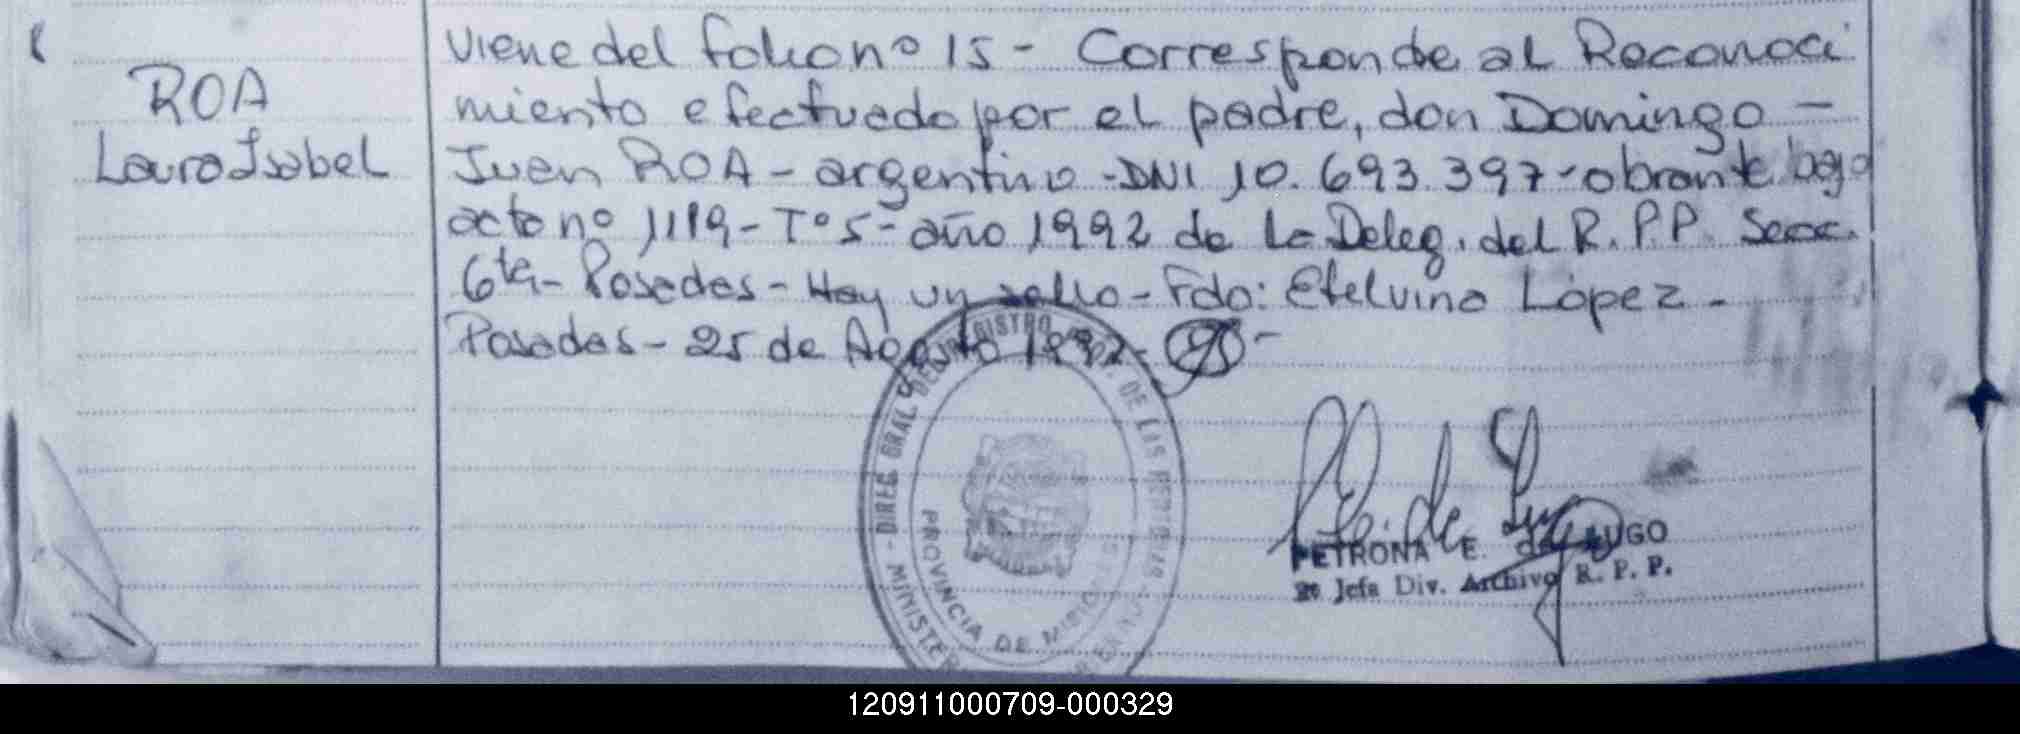 ROA
Laura Isabel
Viene del folio nº 15 - Corresponde al Reconoci
miento efectuado por el padre, don Domingo -
Juan ROA - argentino - DNI 10.693.397 - obrante bajo
acta nº 1119 - Tº 5 - año 1992 de la Deleg. del R.P.P. Secc.
6ta - Posadas - Hay un sello - Fdo: Etelvina López -
Posadas - 25 de Agosto 1992 -
DIREC. GRAL. DEL REGISTRO PROV. DE LAS PERSONAS
PROVINCIA DE MISIONES
PETRONA E. de LUGO
2º Jefa Div. Archivo R. P. P.
120911000709-000329